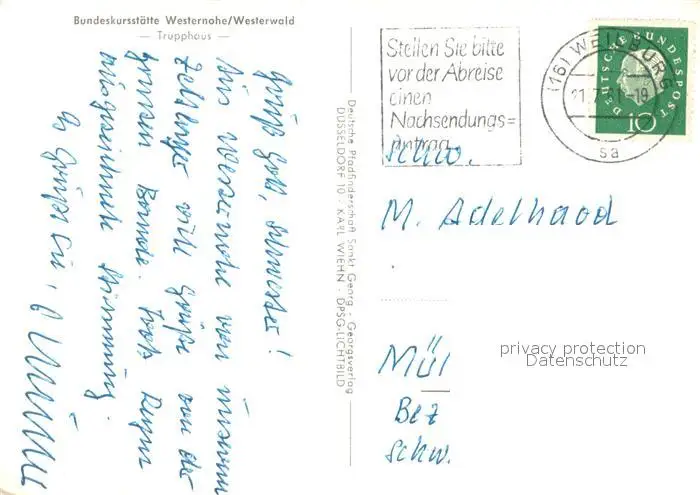 Bundeskursstätte Westernohe/Westerwald
— Trupphaus —
Grüß Gott, Schwester!
Aus Westernohe von unserem
Zeltlager viele Grüße von der
ganzen Bande. Trotz Regen
ausgezeichnete Stimmung.
Es grüßt Sie,
Deutsche Pfadfinderschaft Sankt Georg - Georgsverlag
DÜSSELDORF 10 · KARL WIEHN · DPSG-LICHTBILD
Stellen Sie bitte
vor der Abreise
einen
Nachsendungs=
antrag
(16) WEILBURG
21.7.61-19
sa
DEUTSCHE BUNDESPOST
10
Schw.
M. Adelhaod
Mül
Bez
Schw.
privacy protection
Datenschutz